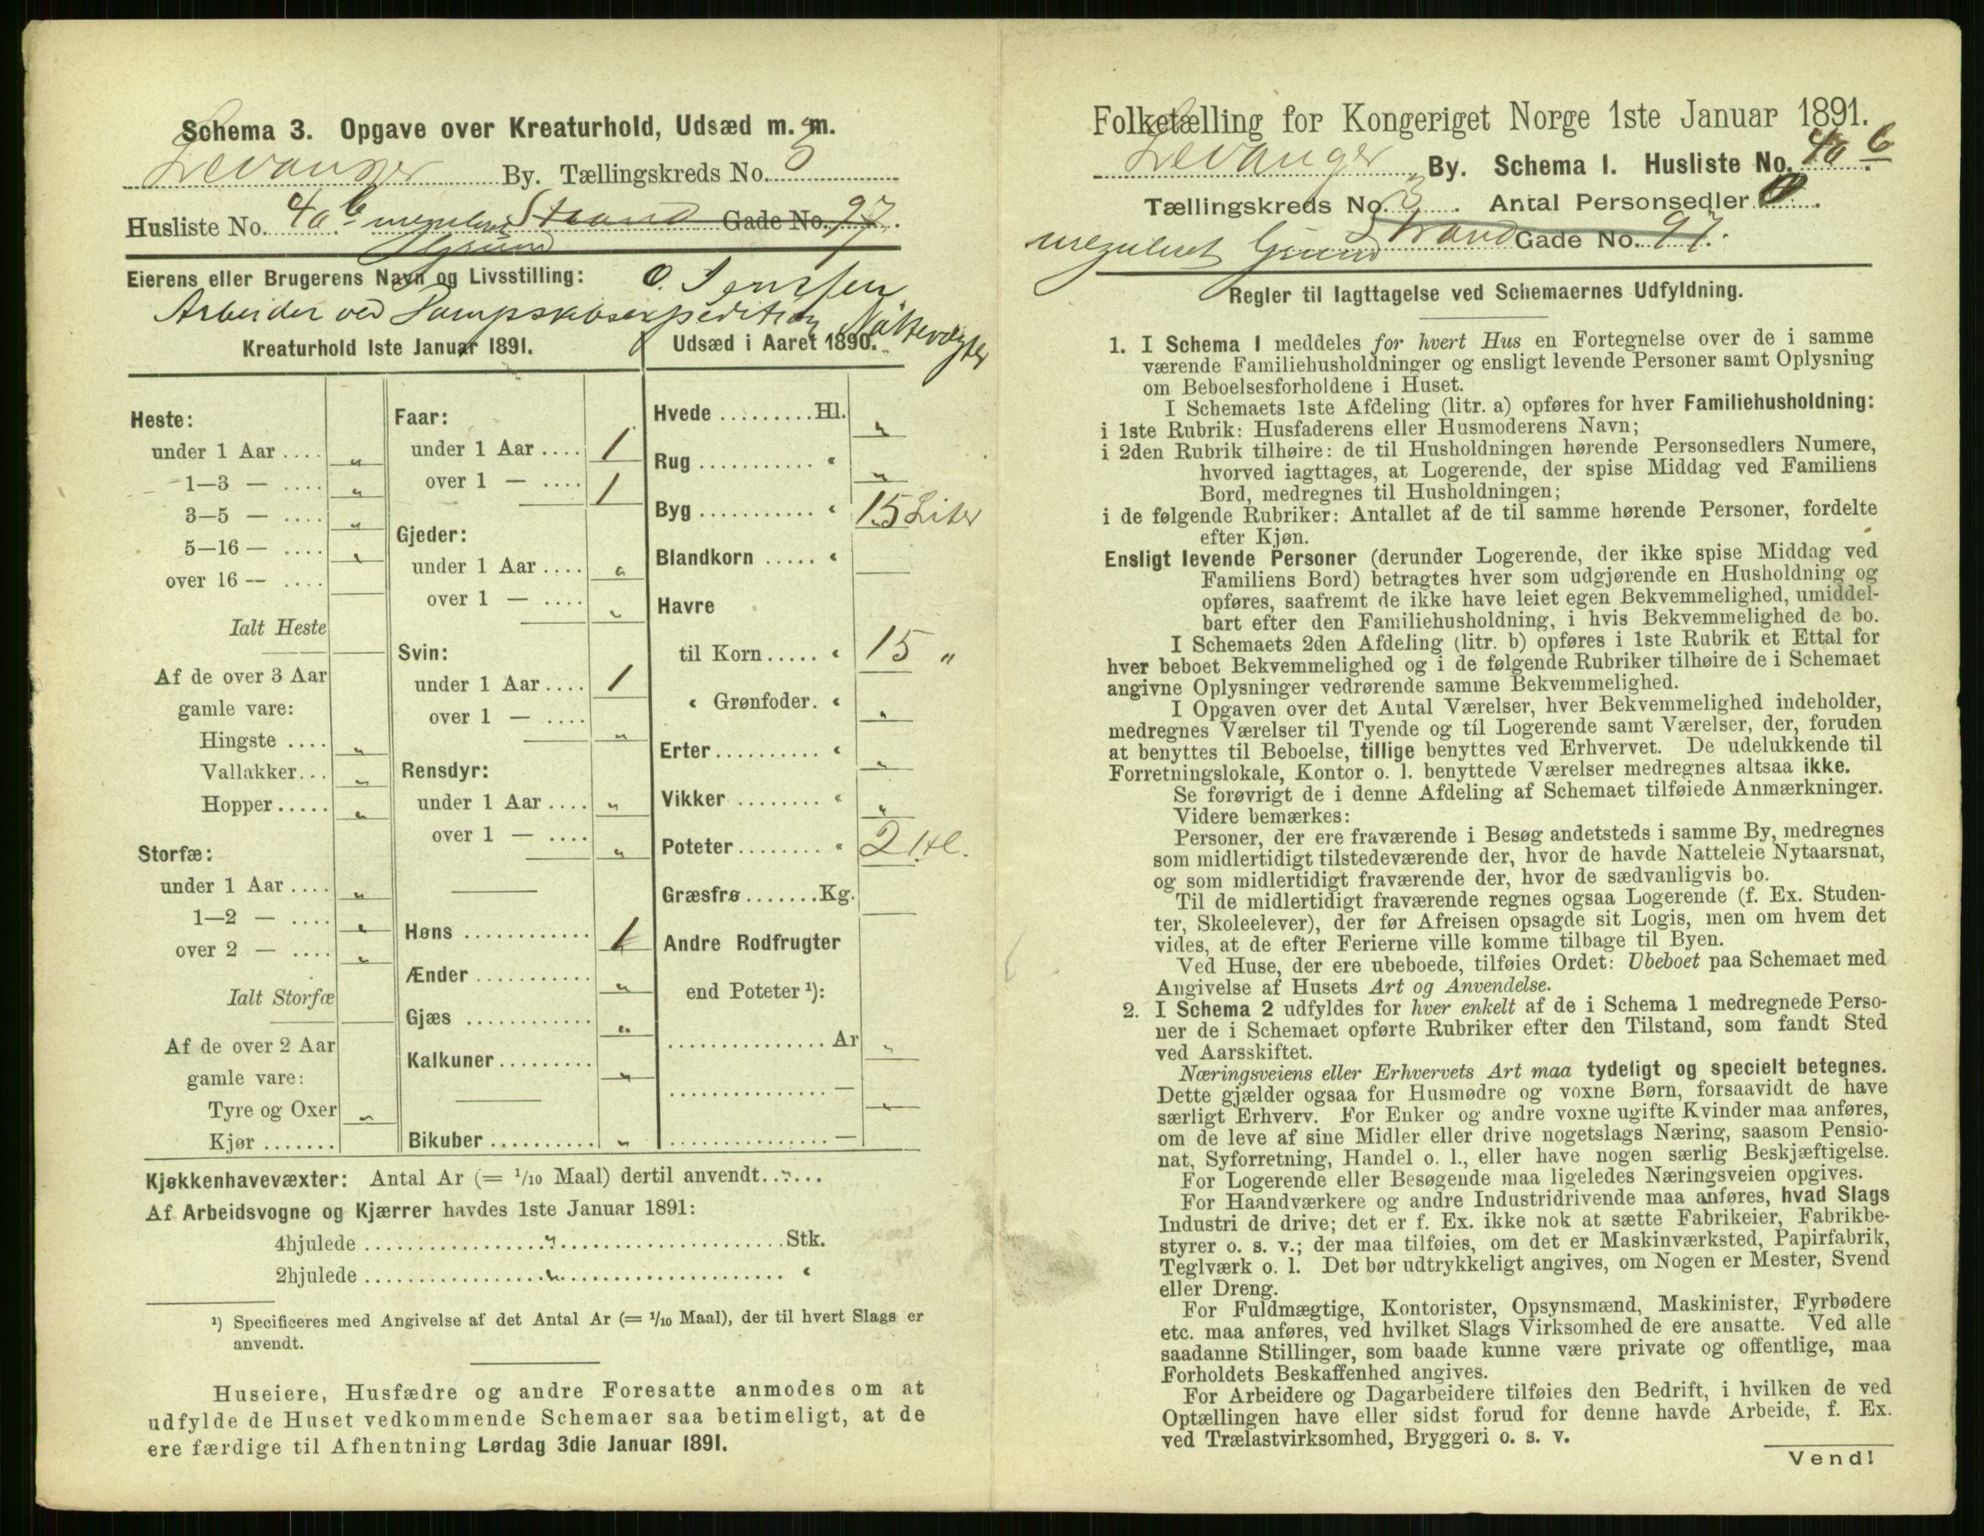 Schema 3. Opgave over Kreaturhold, Udsæd m. m.
Levanger By. Tællingskreds No. 3
Husliste No. 40 b uregulert Strand Gade No. 97.
Grund
Eierens eller Brugerens Navn og Livsstilling: O. Jenssen
Arbeider ved Dampskibsexpedition Nattevægter
Kreaturhold 1ste Januar 1891.
Heste:
under 1 Aar .... „
1—3 — .... „
3—5 — .... „
5—16 — .... „
over 16 — ....
Ialt Heste
Af de over 3 Aar
gamle vare:
Hingste .... „
Vallakker... „
Hopper ..... „
Storfæ:
under 1 Aar .... „
1—2 — .... „
over 2 — .... „
Ialt Storfæ
Af de over 2 Aar
gamle vare:
Tyre og Oxer „
Kjør .......
Faar:
under 1 Aar .... 1
over 1 — .... 1
Gjeder:
under 1 Aar .... „
over 1 — .... „
Svin:
under 1 Aar .... 1
over 1 — .... „
Rensdyr:
under 1 Aar .... „
over 1 — .... „
Høns ............ 1
Ænder ........... „
Gjæs ............ „
Kalkuner ......... „
Bikuber .......... „
Udsæd i Aaret 1890.
Hvede .........Hl. „
Rug ........... „ „
Byg ........... „ 15 Liter
Blandkorn ..... „
Havre
til Korn..... „ 15 „
„ Grønfoder. „ „
Erter.......... „ „
Vikker ........ „ „
Poteter........ „ 2 Hl.
Græsfrø .......Kg.
Andre Rodfrugter
end Poteter ¹):
............... Ar „
............... — „
............... —
Kjøkkenhavevæxter: Antal Ar (= 1/10 Maal) dertil anvendt.. „ ...
Af Arbeidsvogne og Kjærrer havdes 1ste Januar 1891:
4hjulede ................ „ ......................Stk.
2hjulede ................ „ ...................... „
¹) Specificeres med Angivelse af det Antal Ar (= 1/10 Maal), der til hvert Slags er
anvendt.
Huseiere, Husfædre og andre Foresatte anmodes om at
udfylde de Huset vedkommende Schemaer saa betimeligt, at de
ere færdige til Afhentning Lørdag 3die Januar 1891.
Folketælling for Kongeriget Norge 1ste Januar 1891.
Levanger By. Schema 1. Husliste No. 40 b
Tællingskreds No. 3. Antal Personsedler 0.
ureguleret Grund Strand Gade No. 97.
Regler til Iagttagelse ved Schemaernes Udfyldning.
1. I Schema 1 meddeles for hvert Hus en Fortegnelse over de i samme
værende Familiehusholdninger og ensligt levende Personer samt Oplysning
om Beboelsesforholdene i Huset.
I Schemaets 1ste Afdeling (litr. a) opføres for hver Familiehusholdning:
i 1ste Rubrik: Husfaderens eller Husmoderens Navn;
i 2den Rubrik tilhøire: de til Husholdningen hørende Personsedlers Numere,
hvorved iagttages, at Logerende, der spise Middag ved Familiens
Bord, medregnes til Husholdningen;
i de følgende Rubriker: Antallet af de til samme hørende Personer, fordelte
efter Kjøn.
Ensligt levende Personer (derunder Logerende, der ikke spise Middag ved
Familiens Bord) betragtes hver som udgjørende en Husholdning og
opføres, saafremt de ikke have leiet egen Bekvemmelighed, umiddel-
bart efter den Familiehusholdning, i hvis Bekvemmelighed de bo.
I Schemaets 2den Afdeling (litr. b) opføres i 1ste Rubrik et Ettal for
hver beboet Bekvemmelighed og i de følgende Rubriker tilhøire de i Schemaet
angivne Oplysninger vedrørende samme Bekvemmelighed.
I Opgaven over det Antal Værelser, hver Bekvemmelighed indeholder,
medregnes Værelser til Tyende og til Logerende samt Værelser, der, foruden
at benyttes til Beboelse, tillige benyttes ved Erhvervet. De udelukkende til
Forretningslokale, Kontor o. l. benyttede Værelser medregnes altsaa ikke.
Se forøvrigt de i denne Afdeling af Schemaet tilføiede Anmærkninger.
Videre bemærkes:
Personer, der ere fraværende i Besøg andetsteds i samme By, medregnes
som midlertidigt tilstedeværende der, hvor de havde Natteleie Nytaarsnat,
og som midlertidigt fraværende der, hvor de sædvanligvis bo.
Til de midlertidigt fraværende regnes ogsaa Logerende (f. Ex. Studen-
ter, Skoleelever), der før Afreisen opsagde sit Logis, men om hvem det
vides, at de efter Ferierne ville komme tilbage til Byen.
Ved Huse, der ere ubeboede, tilføies Ordet: Ubeboet paa Schemaet med
Angivelse af Husets Art og Anvendelse.
2. I Schema 2 udfyldes for hver enkelt af de i Schema 1 medregnede Perso-
ner de i Schemaet opførte Rubriker efter den Tilstand, som fandt Sted
ved Aarsskiftet.
Næringsveiens eller Erhvervets Art maa tydeligt og specielt betegnes.
Dette gjælder ogsaa for Husmødre og voxne Børn, forsaavidt de have
særligt Erhverv. For Enker og andre voxne ugifte Kvinder maa anføres,
om de leve af sine Midler eller drive nogetslags Næring, saasom Pensio-
nat, Syforretning, Handel o. l., eller have nogen særlig Beskjæftigelse.
For Logerende eller Besøgende maa ligeledes Næringsveien opgives.
For Haandværkere og andre Industridrivende maa anføres, hvad Slags
Industri de drive; det er f. Ex. ikke nok at sætte Fabrikeier, Fabrikbe-
styrer o. s. v.; der maa tilføies, om det er Maskinværksted, Papirfabrik,
Teglværk o. l. Det bør udtrykkeligt angives, om Nogen er Mester, Svend
eller Dreng.
For Fuldmægtige, Kontorister, Opsynsmænd, Maskinister, Fyrbødere
etc. maa anføres, ved hvilket Slags Virksomhed de ere ansatte. Ved alle
saadanne Stillinger, som baade kunne være private og offentlige, maa
Forholdets Beskaffenhed angives.
For Arbeidere og Dagarbeidere tilføies den Bedrift, i hvilken de ved
Optællingen have eller sidst forud for denne havde Arbeide, f. Ex.
ved Trælastvirksomhed, Bryggeri o. s. v.
Vend!